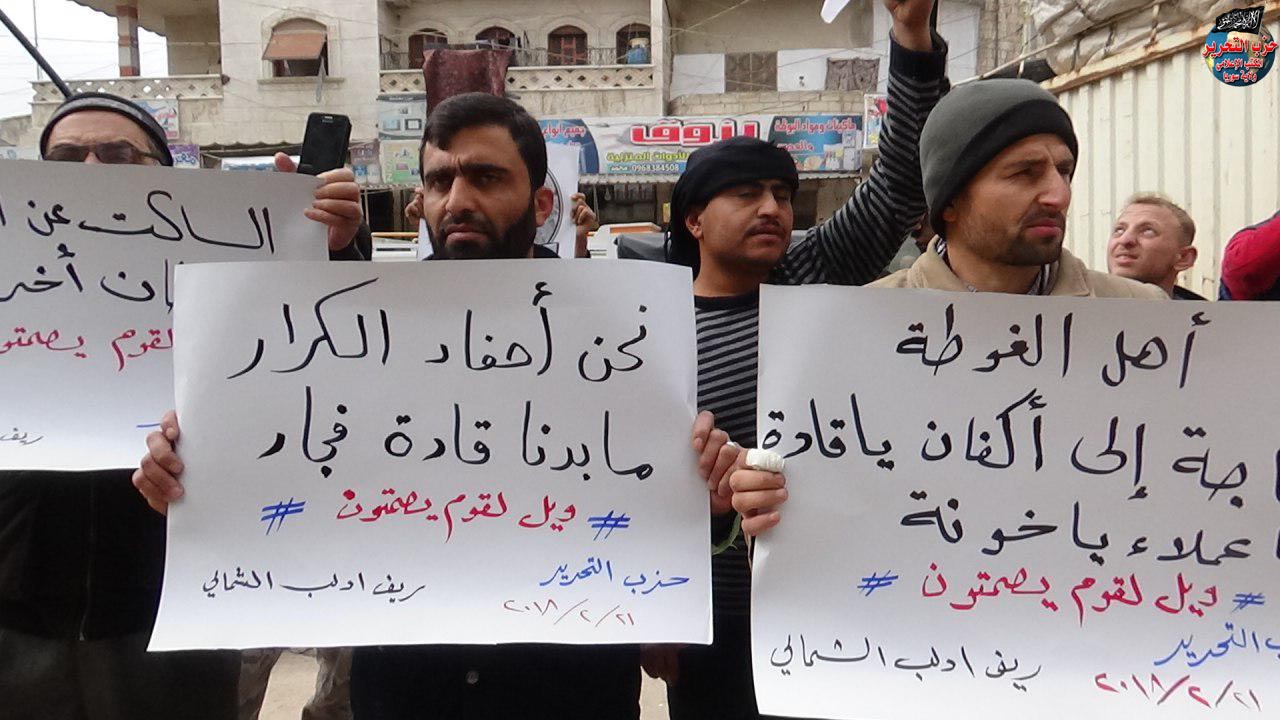 حزب التحرير
المكتب الإعلامي
ولاية سوريا
زنوق
للأدوات المنزلية
0968384508
الساكت عن
لقوم يصمتو
ريف
نحن أحفاد الكرار
ما بدنا قادة فجار
# ويل لقوم يصمتون #
حزب التحرير
ريف ادلب الشمالي
٢٠١٨/٢/٢١
أهل الغوطة
اجة إلى أكفان يا قادة
عملاء يا خونة
# ويل لقوم يصمتون #
ب التحرير
ريف ادلب الشمالي
٢٠١٨/٢/٢١